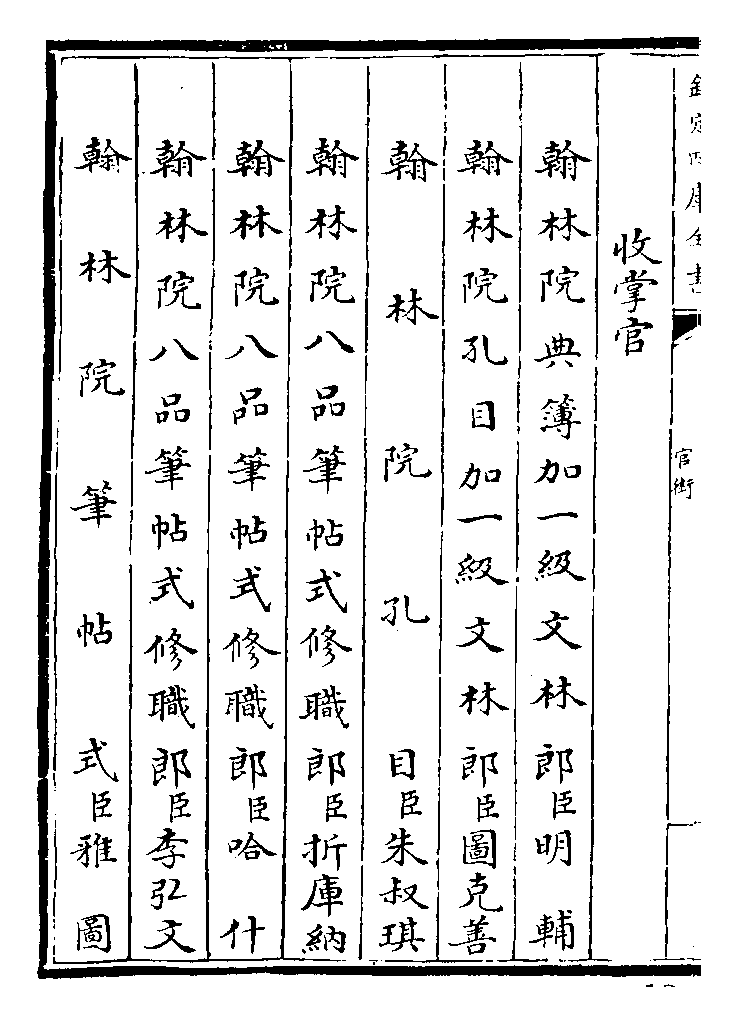 欽定四庫全書
官銜
收掌官
翰林院典簿加一級文林郎臣明輔
翰林院孔目加一級文林郎臣圖克善
翰林院孔目臣朱叔琪
翰林院八品筆帖式修職郎臣折庫納
翰林院八品筆帖式修職郎臣哈什
翰林院八品筆帖式修職郎臣李弘文
翰林院筆帖式臣雅圖